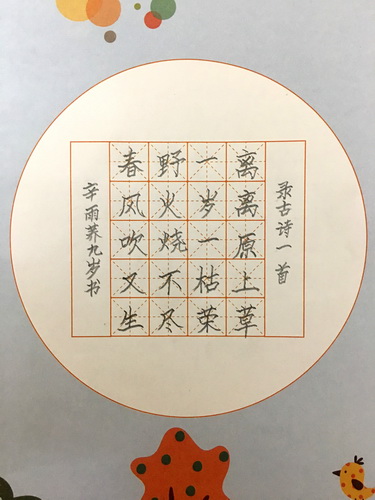 录古诗一首
离离原上草
一岁一枯荣
野火烧不尽
春风吹又生
辛雨荞九岁书